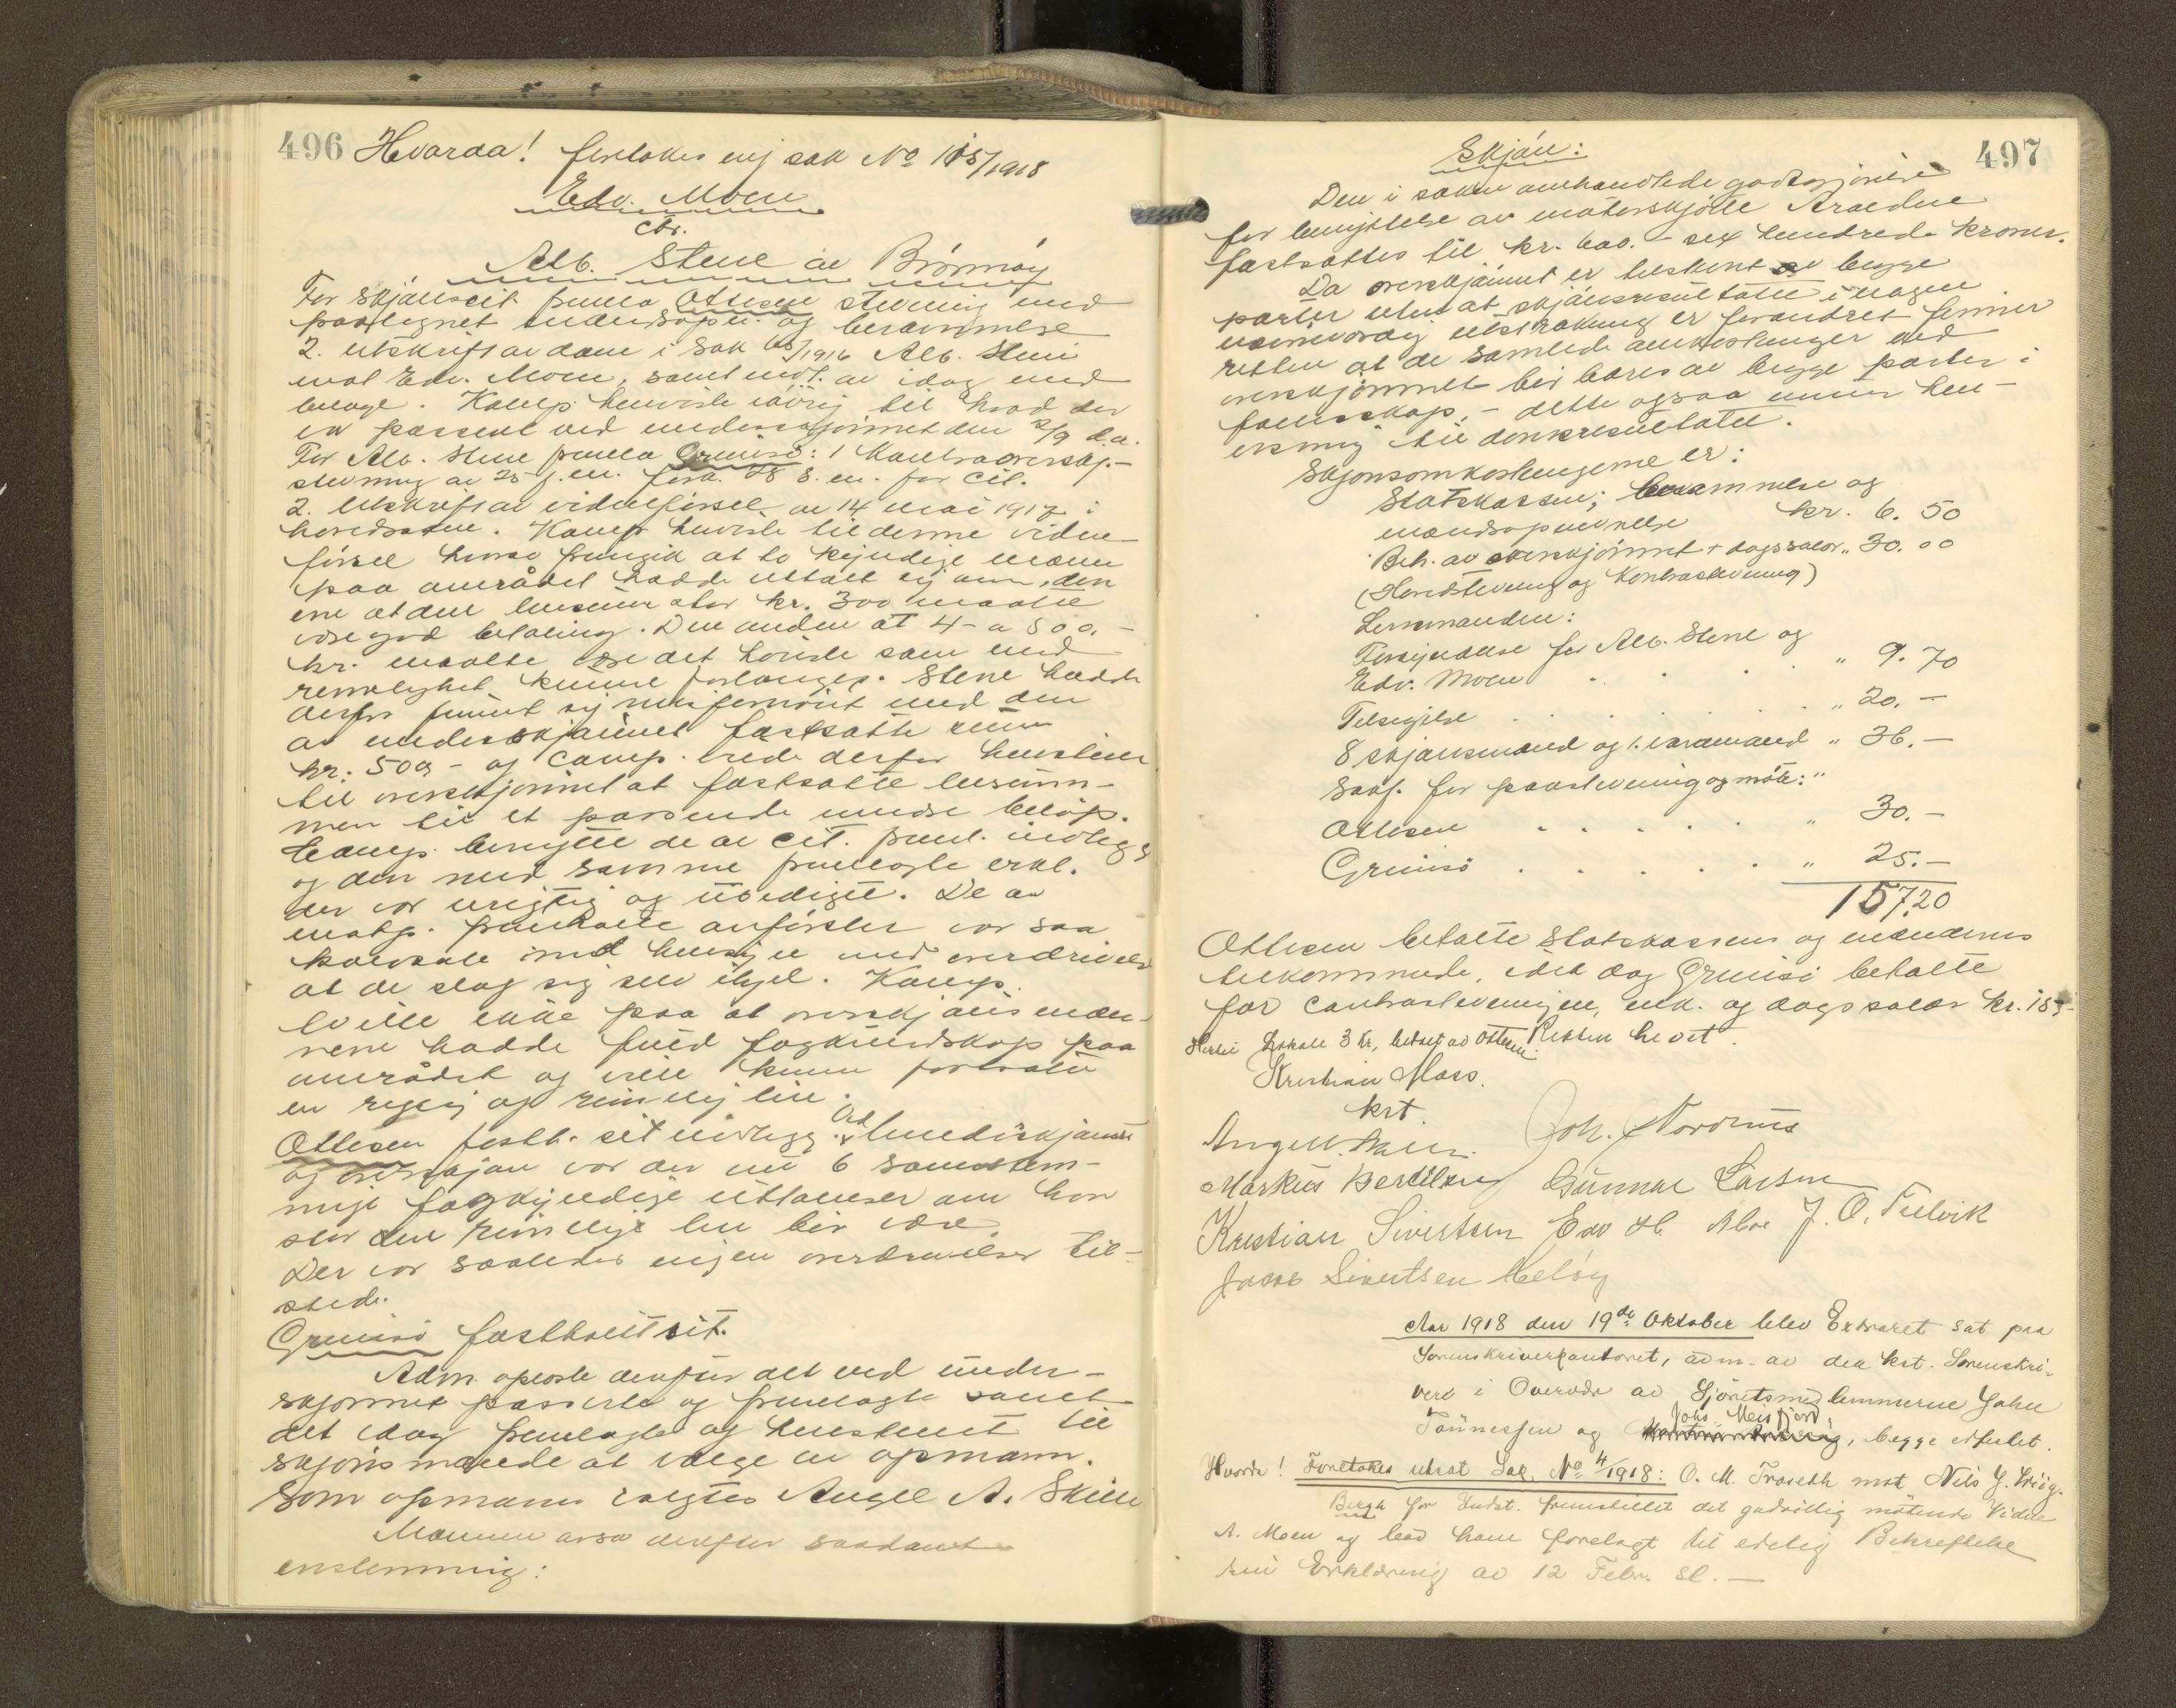 496
Hvorda! foretokes ny sak No 115/1918
Edv. Moen
ctr.
Alb. Stene av Brønnøy
For Skjønscit. fremla Ottesen stevning med
paategnet mændsopn. og berammelse
2. utskrift av dom i sak /1916 Alb. Stene
mot Edv. Moen, samt indl. av idag med
bilage. Komp. henviste iøvrig til hvad der
er passert ved underskjønnet den 2/9 d.a.
For Alb. Stene fremla Grünsø: 1 Kontraoverskj.-
stevning av 25 f.m. fork. 8 s.m. for cit.
2. Utskrift av vidneførsel av 14 mai 1917 i
hovedsaken. Komp. henviste til denne vidne-
førsel hvorav fremgik at to kyndige mænn
paa området hadde uttalt sig om, den
ene at den leiesum stor kr. 300 maatte
være god betaling. Den anden at 4- a 500.-
kr. maatte være det høieste som med
rimelighet kunne forlanges. Stene hadde
derfor funnet sig misfornøiet med den
av underskjønnet fastsatte sum
kr. 500- og Comp. vilde derfor henstille
til overskjønnet at fastsætte leiesum-
men til et passende mindre beløp.
Comp. benegtet de av cit. freml. indlegg
og den med samme fremlagte erkl.
der var urigtig og ubediget. De av
motp. fremholdte anførsler var saa
kolossale med hensyn med overdrivelse
at de slog sig selv ihjel. Komp.
tvilte ikke paa at overskjønsmæn-
nene hadde fuld fagkundskap paa
området og ville kunne fastsætte
en rigtig og rimelig leie.
Ottesen fasth. sit indlegg. Ved underskjønnet
og overskjøn var der nu 6 samstem-
mige fagkyndige uttalelser om hvor
stor den rimelige leie bør være.
Der var saaledes ingen overdrivelser til-
stede.
Grünsø fastholdt sit.
Adm. opleste derefter det ved under-
skjønnet passerte og fremlagte samt
det idag fremlagte og henstillet til
skjønsmændene at vælge en opmann.
Som opmann valgtes Angell A. Skille
Mænnene avsa derefter saadant
enstemmig:
497
Skjøn:
Den i saken omhandlede godtgjørelse
for benyttelse av motorskjøite Aroedne
fastsættes til kr. 600.- sex hundrede kroner.
Da overskjønnet er tilskent av begge
parter uten at skjønsresultatet i nogen
nævneværdig utstrækning er forandret finner
retten at de samlede omkostninger ved
overskjønnet bør bæres av begge parter i
fællesskap, - dette ogsaa under hen-
visning til domsresultatet.
Skjønsomkostningerne er:
Statskassen; berammelse og
mændsopnevnelse kr. 6.50
Beh. av overskjønnet + dagssalær " 30.00
(Hovedstevning og Kontrastevning)
Lensmanden:
Forkyndelse for Alb. Stene og
Edv. Moen . . . " 9.70
Tilsigelse . . . . . " 20.-
8 skjønsmænd og 1 varamand " 36.-
Sakf. for paastevning og møte: "
Ottesen . . . . . " 30.-
Grünsø . . . . . " 25.-
157,20
Ottesen betalte Statskassens og mændenes
tilkommende, idet dog Grünsø betalte
for contrastevningen, ink. og dagssalær kr. 15.-
Herav Lokale 3 kr, betalt av Ottesen. Retten hevet.
Kristian Moss.
kst.
Joh. Nordnus
Markus Bertilsen Gunnar Larsen
Kristian Sivertsen Edv H. Moe J. O. Tilvik
Jacob Sivertsen Heløy
Aar 1918 den 19de Oktober blev Extraret sat paa
Sorenskriverkontoret, adm. av den kst. Sorenskri-
ver i Overvær av Sjøretsmedlemmerne Johan
Tønnessen og Johs Meisfjord, begge edfæstet.
Hvorda! Foretokes utsat Sak No 4/1918: O. M. Traseth mot Nils J. Wiig.
Bergh for Indst. fremstillet det godvillig møtende Vidne
A. Moen og lod ham forelagt til edelig Bekreftelse
sin Erklæring av 12 Febr. sl.-